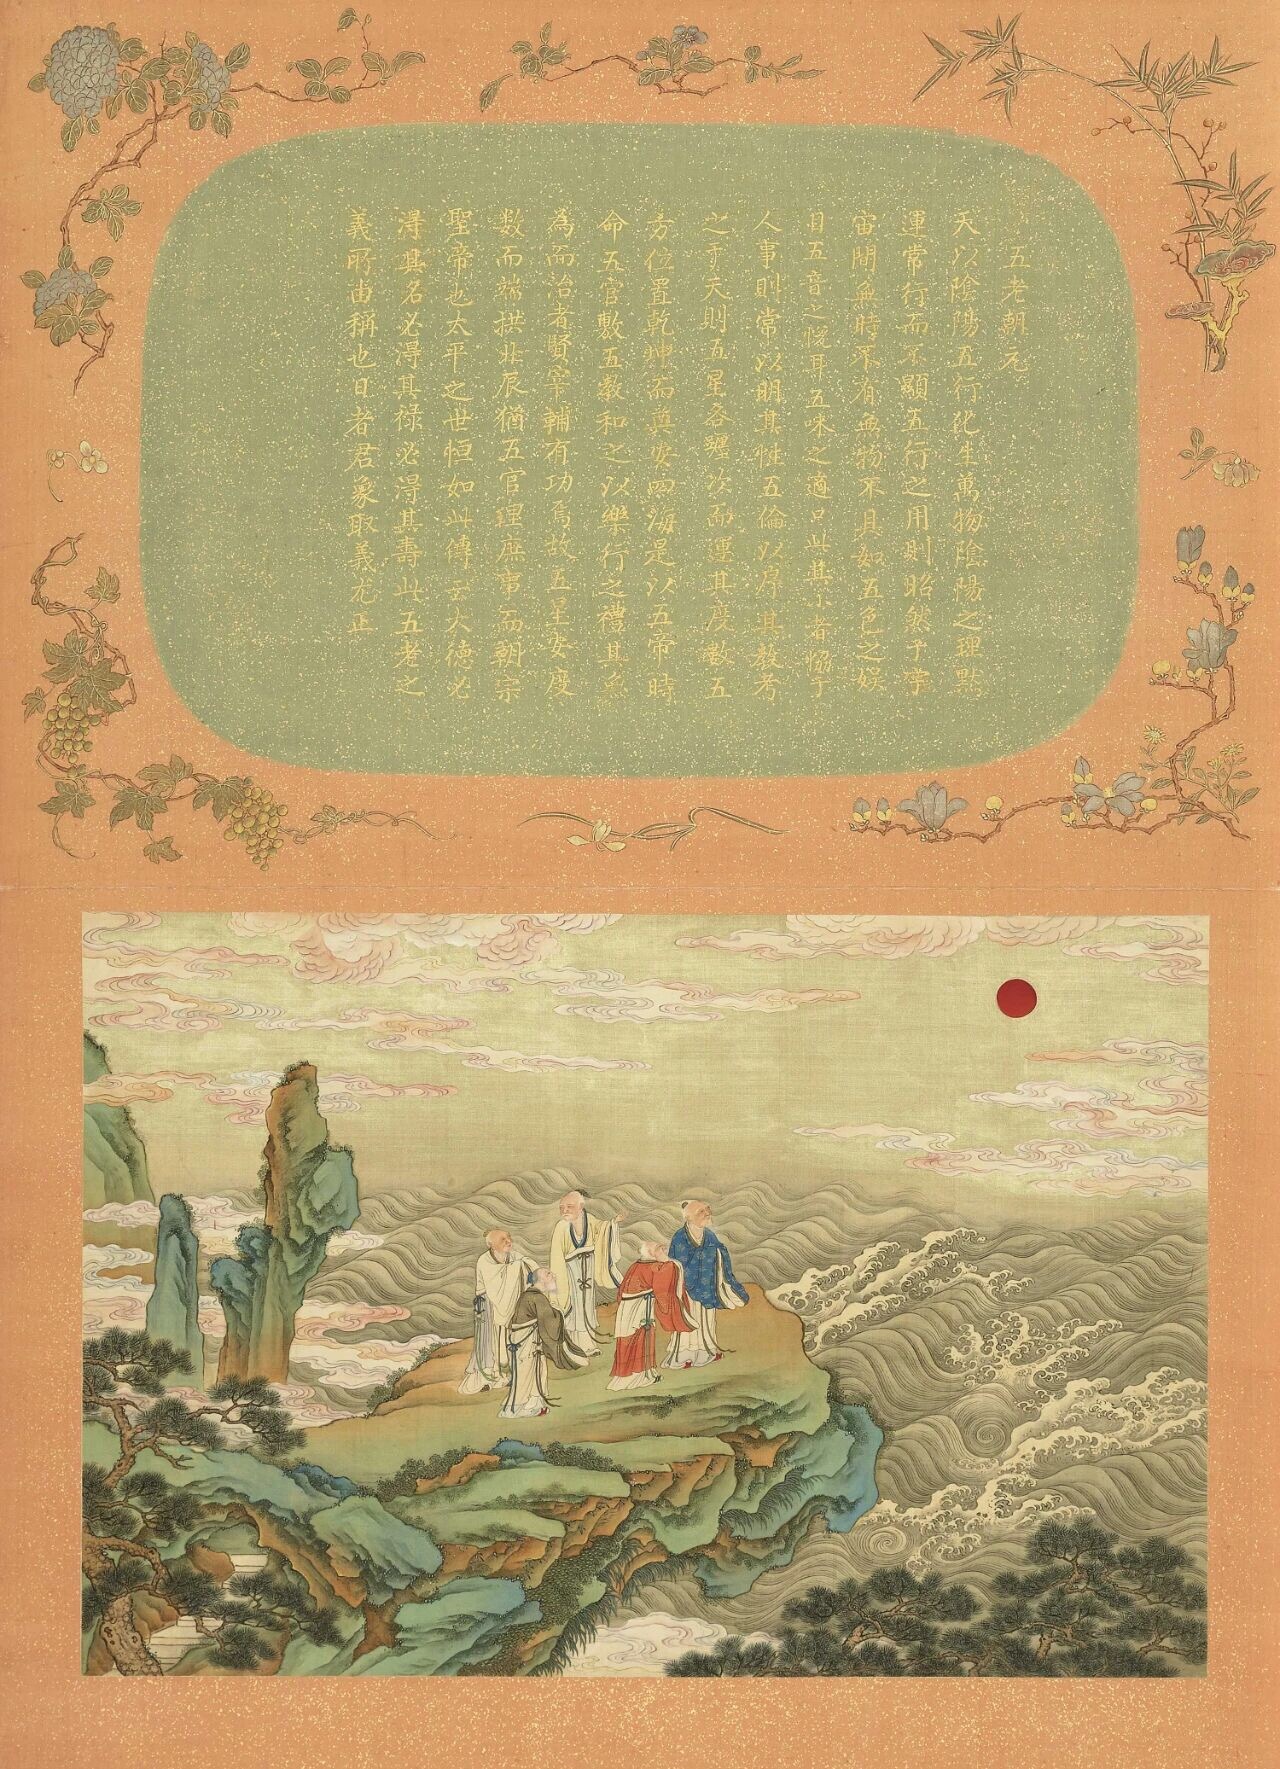 五老朝元
天以陰陽五行化生萬物陰陽之理默
運常行而不顯五行之用則昭然于宇
宙間無時不有無物不具如五色之娛
目五音之悅耳五味之適口此其小者愶于
人事則常以明其性五倫以序其教考
之于天則五星各躔次而運其度數五
方位置乾坤而奠安四海是以五帝時
命五官敷五教和之以樂行之禮其無
為而治者賢宰輔有功焉故五星安度
数而端拱北辰猶五官理庶事而朝宗
聖帝也太平之世恒如此傳云大德必
淂其名必淂其祿必淂其壽此五老之
義所由稱也日者君象取義尤正